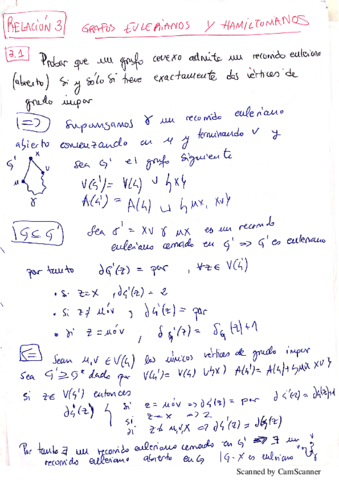 RELACIÓN 3 GRAFOS EULERIANOS Y HAMILTONIANOS
3.1 Probar que un grafo conexo admite un recorrido euleriano
(abierto) si y sólo si tiene exactamente dos vértices de
grado impar
=>) Supongamos γ un recorrido euleriano
abierto comenzando en u y terminando v y
sea G' el grafo siguiente
G'
x
v
u
γ
V(G') = V(G) ∪ {x}
A(G') = A(G) ∪ {ux, xv}
G ⊆ G' Sea γ' = xv γ ux es un recorrido
euleriano cerrado en G' => G' es euleriano
por tanto δG'(z) = par, ∀z ∈ V(G)
• Si z = x, δG'(z) = 2
• Si z ≠ u ó v, δG'(z) = par
• Si z = u ó v, δG'(z) = δG(z) + 1
<= Sean u, v ∈ V(G) los únicos vértices de grado impar
Sea G' ⊇ G dado por V(G') = V(G) ∪ {x} A(G') = A(G) + {ux, xv}
si z ∈ V(G') entonces
δG'(z) { si z = u ó v => δG'(z) = par δG'(z) = δG(z) + 1
si z = x => 2
si z ≠ u, v, x => δG'(z) = δG(z)
Por tanto ∃ un recorrido euleriano cerrado en G' => ∃ un
recorrido euleriano abierto en G G'-x es euleriano
Scanned by CamScanner